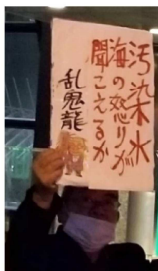 汚染水
海の怒りが
聞こえるか
乱鬼龍